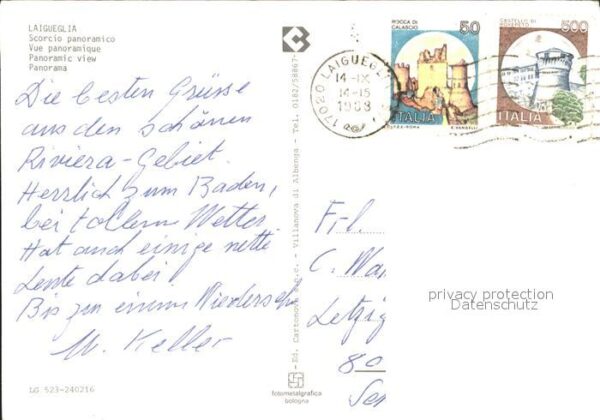 LAIGUEGLIA
Scorcio panoramico
Vue panoramique
Panoramic view
Panorama
Die besten Grüsse
aus den schönen
Riviera-Gebiet.
Herrlich zum Baden,
bei tollem Wetter
Hat auch einige nette
Leute dabei!
Bis zu einem Wiederseh
M. Keller
LG 523-240216
- Villanova di Albenga - Tel. 0182/
fotometalgrafica
bologna
17020 LAIGUEG
14-IX
14-15
1988
ROCCA DI
CALASCIO
50
ITALIA
CASTELLO DI
ROVERETO
500
ITALIA
Frl.
C. Wa
Letzig
80
privacy protection
Datenschutz